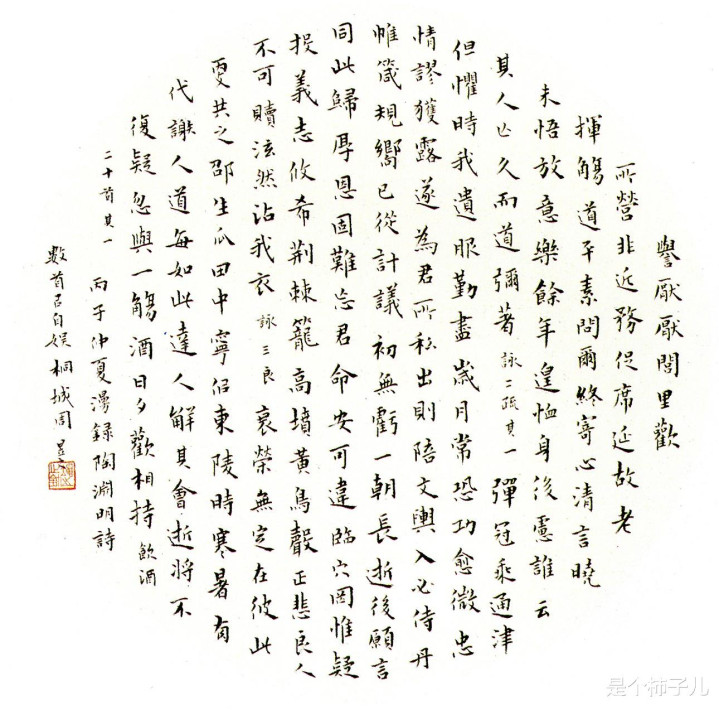 譽厭厭閭里歡
所營非近務促席延故老
揮觴道平素問爾終寄心清言曉
未悟放意樂餘年遑恤身後慮誰云
其人亡久而道彌著詠二疏其一彈冠乘通津
但懼時我遺服勤盡歲月常恐功愈微忠
情謬獲露遂為君所私出則陪文輿入必侍丹
帷箴規嚮已從計議初無虧一朝長逝後願言
同此歸厚恩固難忘君命安可違臨穴罔惟疑
投義志攸希荊棘籠高墳黃鳥聲正悲良人
不可贖泫然沾我衣詠三良衰榮無定在彼此
更共之邵生瓜田中寧佀東陵時寒暑有
代謝人道每如此達人解其會逝將不
復疑忽與一觴酒日夕歡相持飲酒
二十首其一丙子仲夏漫錄陶淵明詩
數首㠯自娛桐城周
是个柿子儿